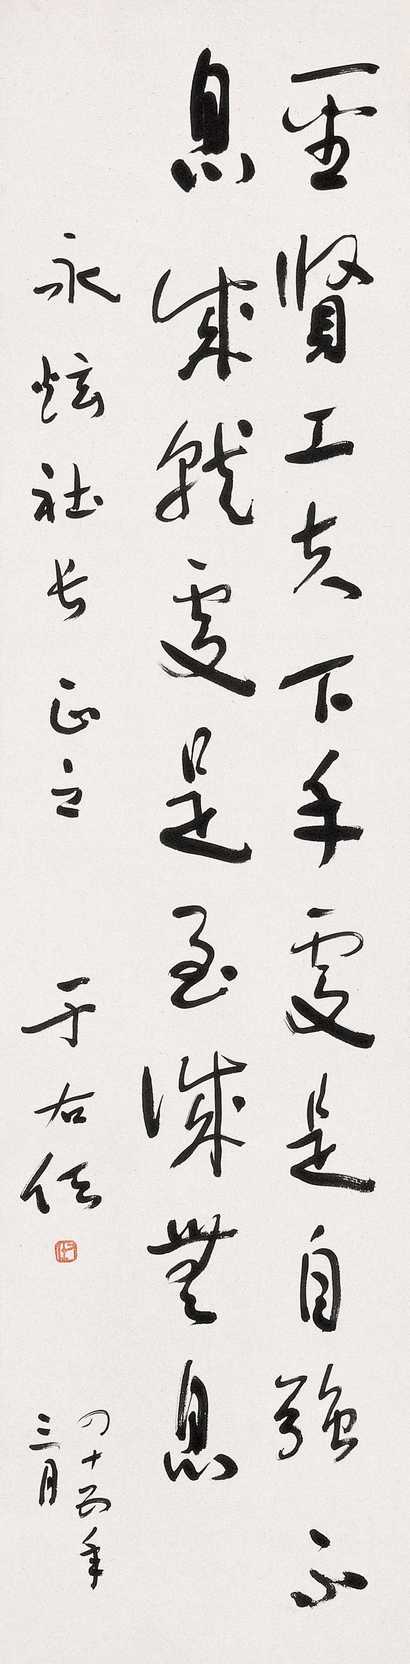 聖賢工夫下手處是自強不
息成就處是至誠無息
永炫社長正之
于右任
四十五年
三月